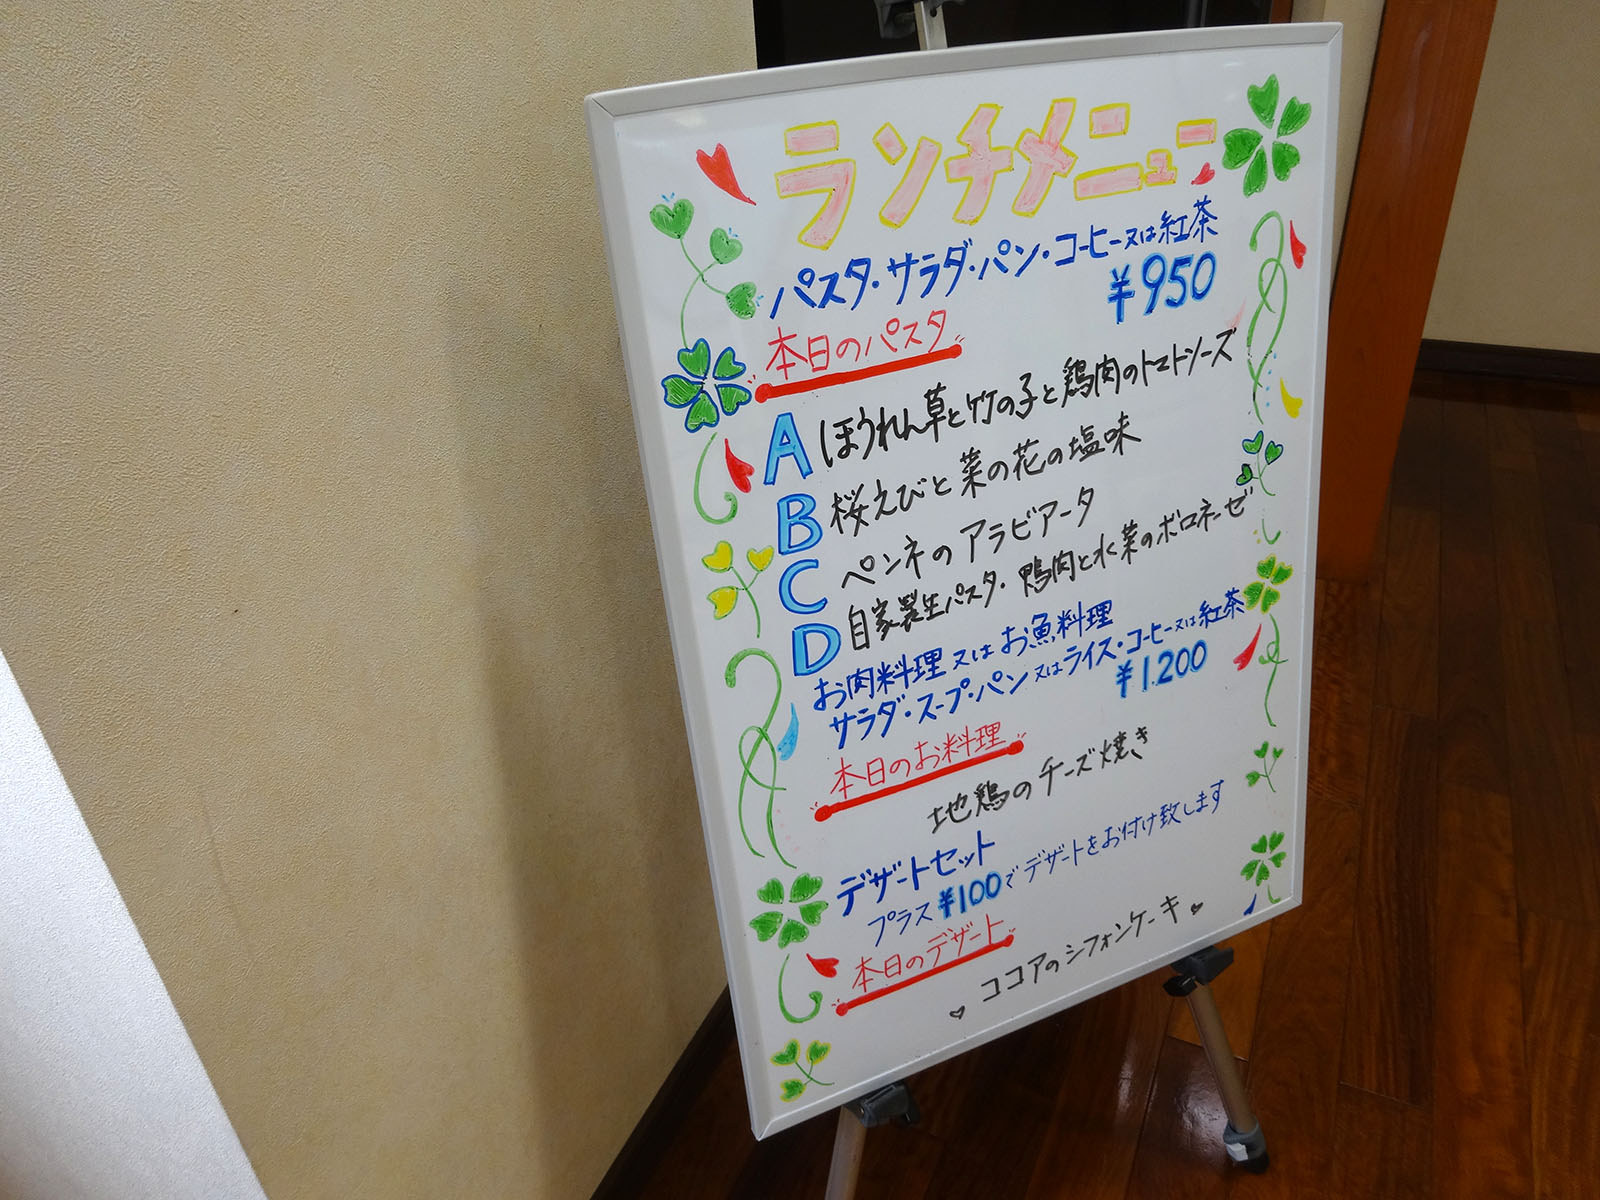 ランチメニュー
パスタ・サラダ・パン・コーヒー又は紅茶
¥950
本日のパスタ
A ほうれん草と竹の子と鶏肉のトマトソース
B 桜えびと菜の花の塩味
C ペンネのアラビアータ
D 自家製生パスタ・鴨肉と水菜のボロネーゼ
お肉料理又はお魚料理
サラダ・スープ・パン又はライス・コーヒー又は紅茶
¥1.200
本日のお料理
地鶏のチーズ焼き
デザートセット
プラス¥100でデザートをお付け致します
本日のデザート
ココアのシフォンケーキ